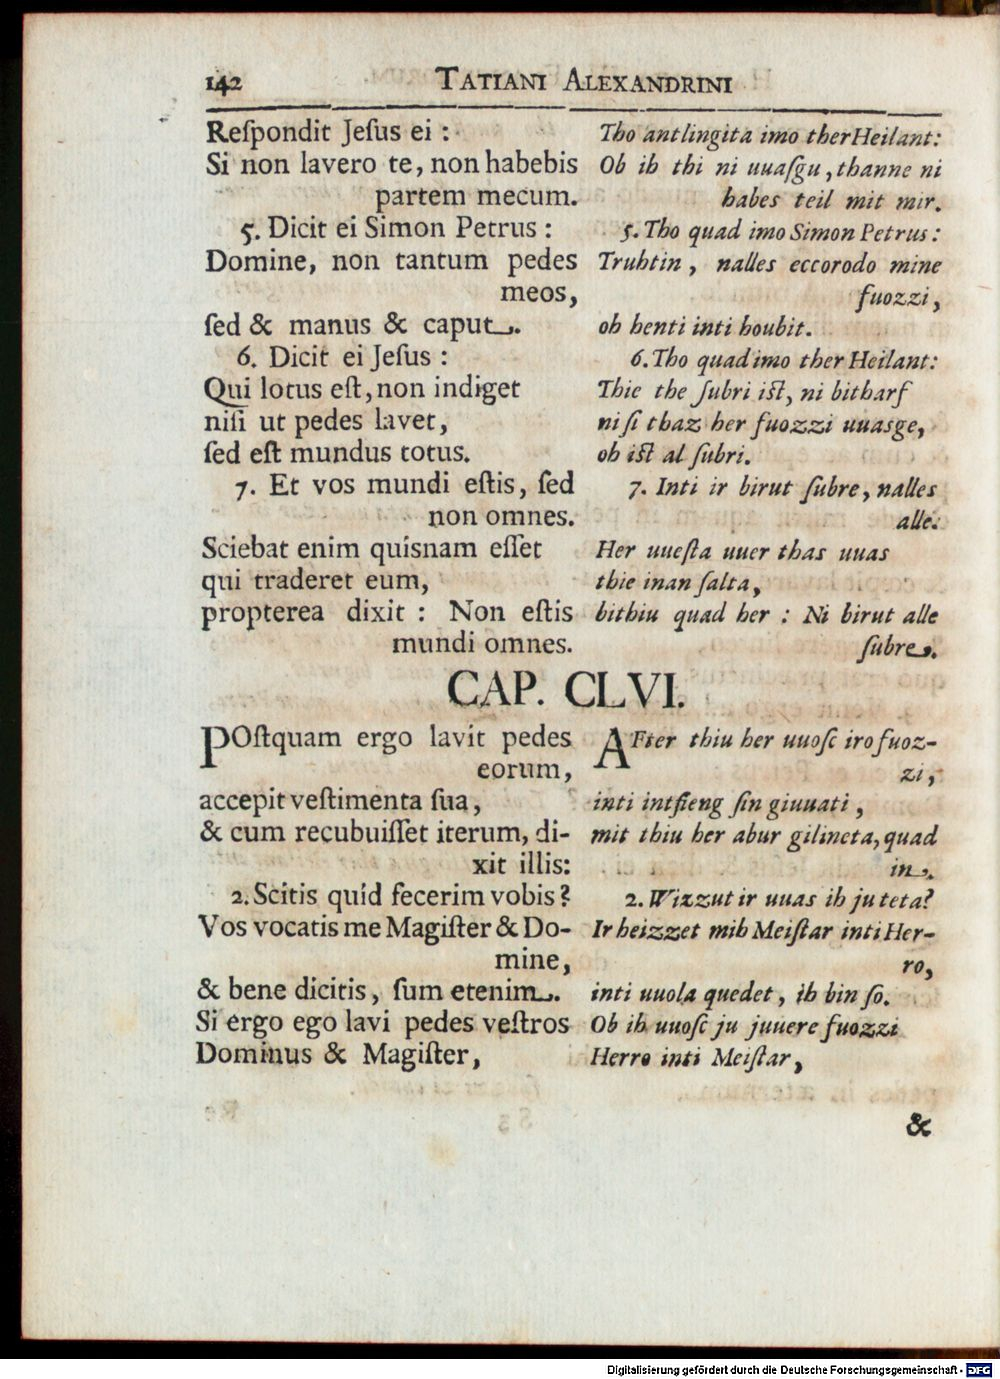 142 TATIANI ALEXANDRINI
Reſpondit Jeſus ei :
Si non lavero te, non habebis
partem mecum.
5. Dicit ei Simon Petrus :
Domine, non tantum pedes
meos,
ſed & manus & caput.
6. Dicit ei Jeſus :
Qui lotus eſt, non indiget
niſi ut pedes lavet,
ſed eſt mundus totus.
7. Et vos mundi eſtis, ſed
non omnes.
Sciebat enim quisnam eſſet
qui traderet eum,
propterea dixit : Non eſtis
mundi omnes.
Tho antlingita imo ther Heilant:
Ob ih thi ni uuaſgu, thanne ni
habes teil mit mir.
5. Tho quad imo Simon Petrus :
Truhtin, nalles eccorodo mine
fuozzi,
oh henti inti houbit.
6. Tho quad imo ther Heilant:
Thie the ſubri iſt, ni bitharf
ni ſi thaz her fuozzi uuasge,
oh iſt al ſubri.
7. Inti ir birut ſubre, nalles
alle.
Her uueſta uuer thas uuas
thie inan ſalta,
bithiu quad her : Ni birut alle
ſubre.
CAP. CLVI.
POſtquam ergo lavit pedes
eorum,
accepit veſtimenta ſua,
& cum recubuiſſet iterum, di-
xit illis:
2. Scitis quid fecerim vobis?
Vos vocatis me Magiſter & Do-
mine,
& bene dicitis, ſum etenim.
Si ergo ego lavi pedes veſtros
Dominus & Magiſter,
AFter thiu her uuoſc iro fuoz-
zi,
inti intfieng ſin giuuati,
mit thiu her abur gilineta, quad
in.
2. Wizzut ir uuas ih ju teta?
Ir heizzet mih Meiſtar inti Her-
ro,
inti uuola quedet, ih bin ſo.
Ob ih uuoſc ju juuere fuozzi
Herro inti Meiſtar,
&
Digitalisierung gefördert durch die Deutsche Forschungsgemeinschaft - DFG